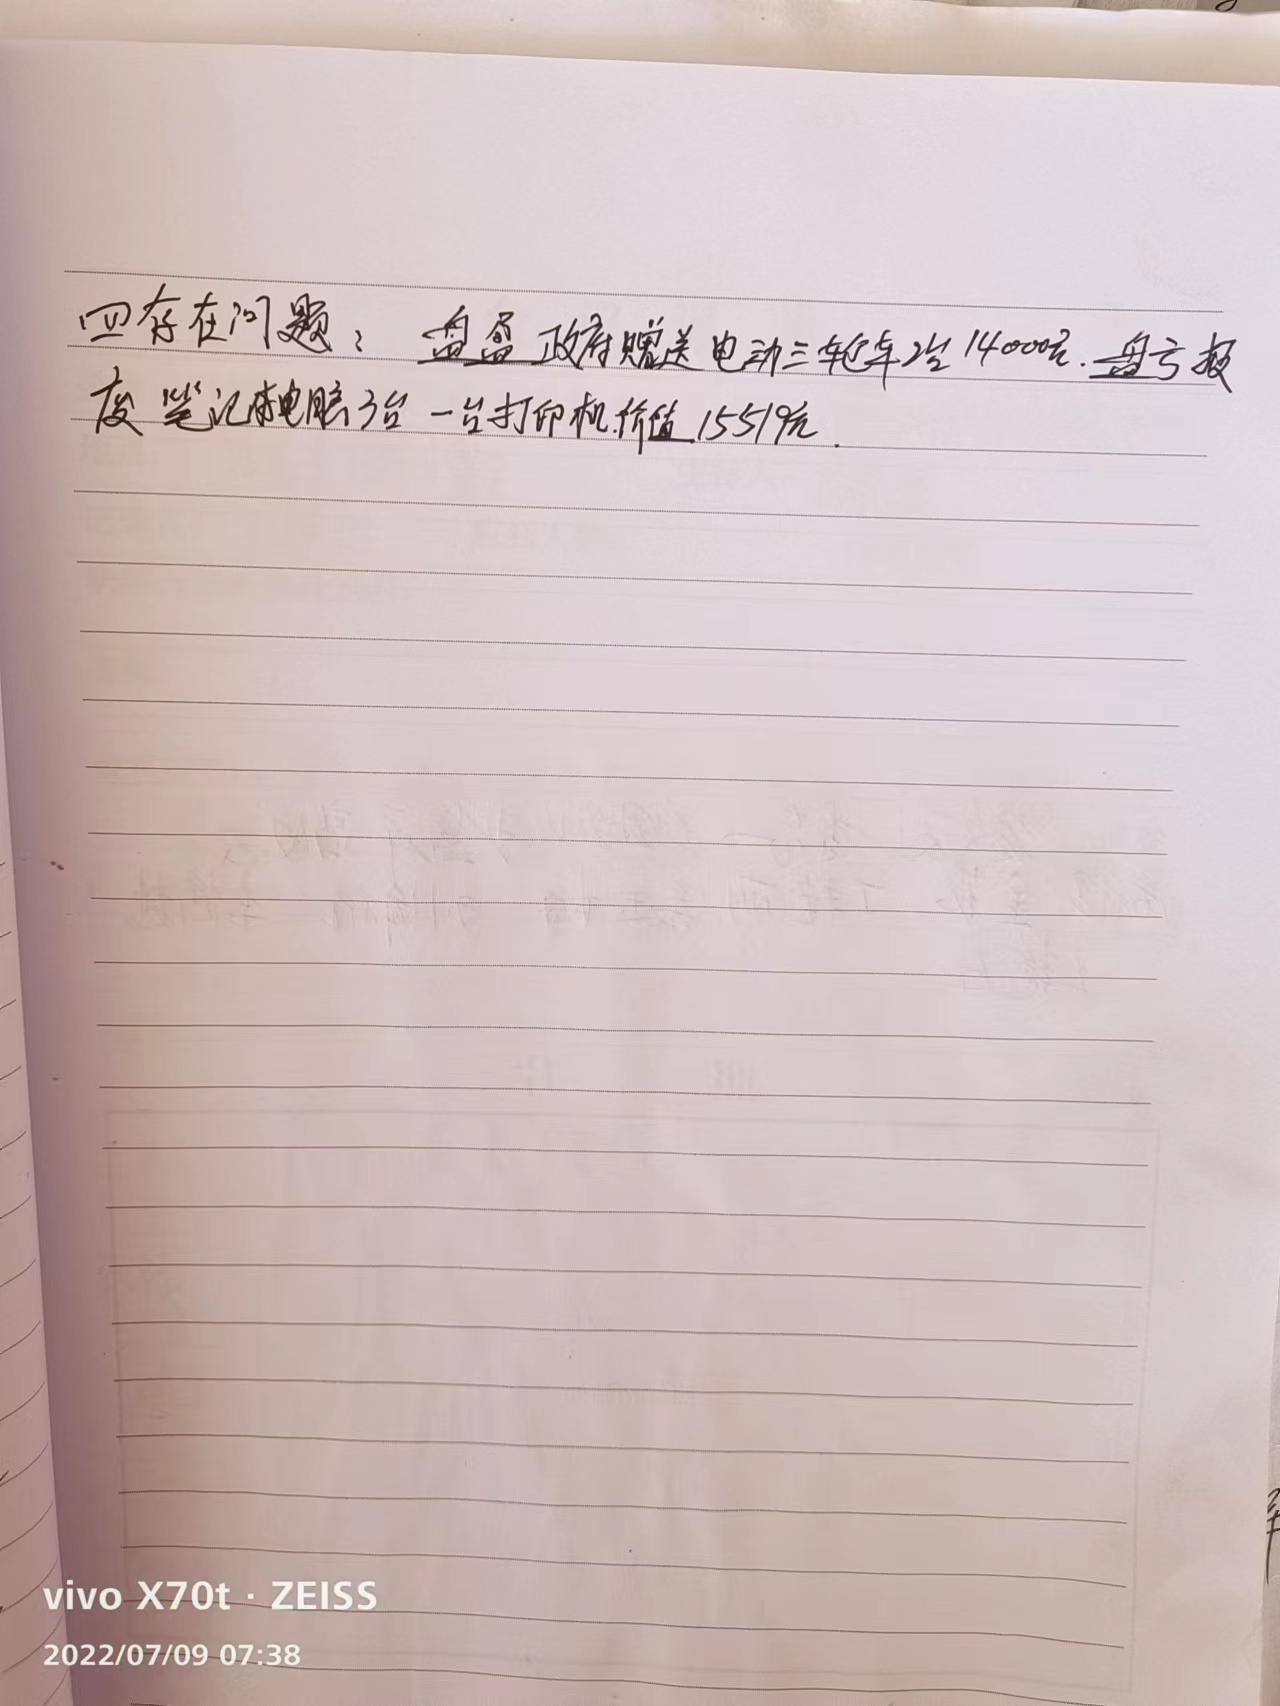 四存在问题： 盘盈 政府赠送电动三轮车2台14000元.盘亏报
废 笔记本电脑3台 一台打印机.价值15519元.
vivo X70t · ZEISS
2022/07/09 07:38